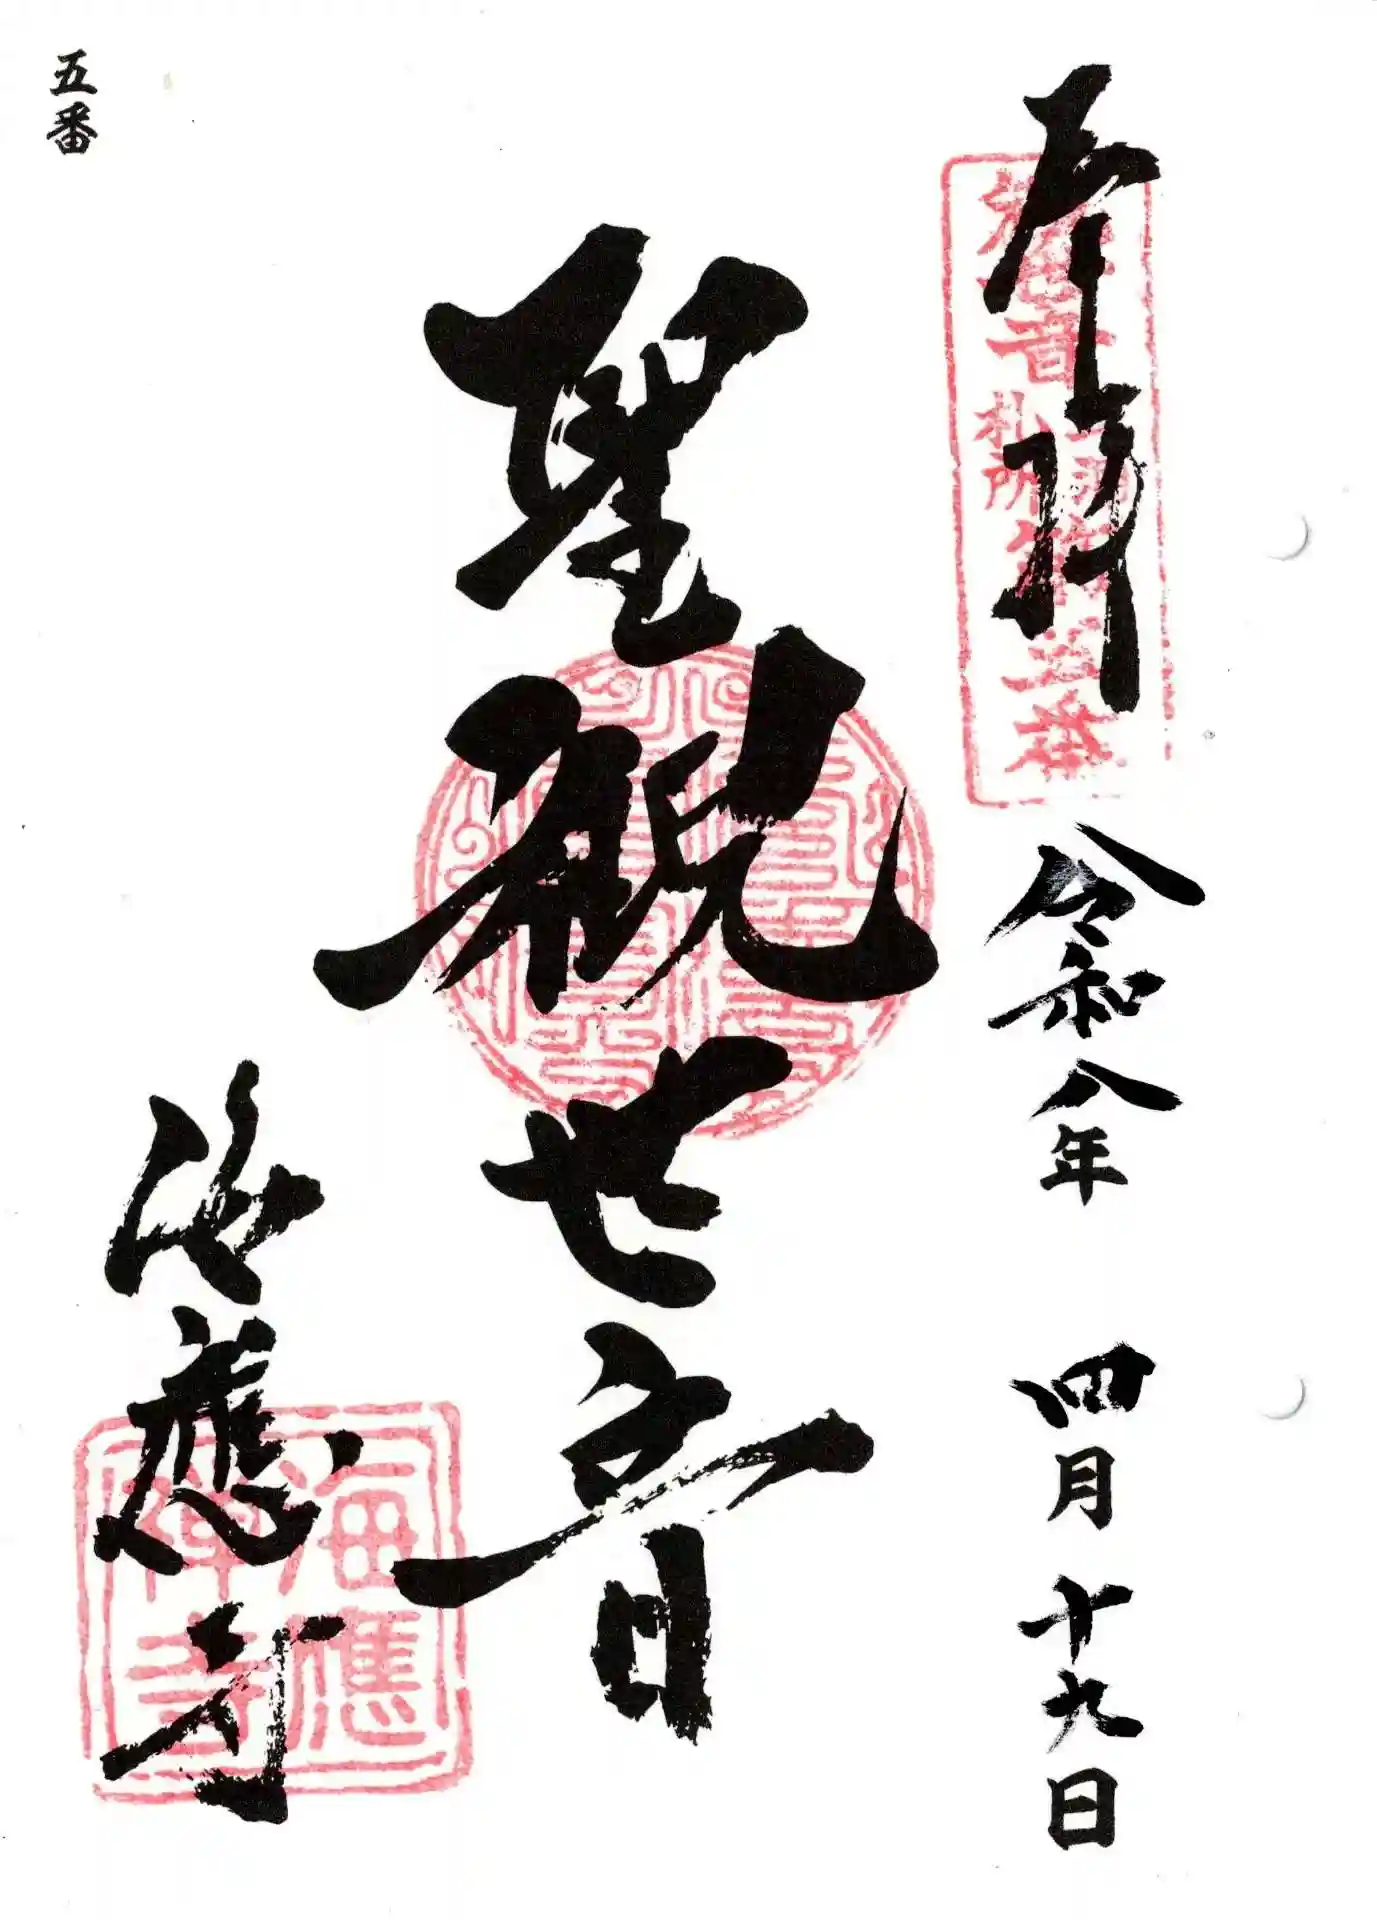 奉拝
令和八年 四月十九日
聖観世音
海應寺
五番
観世音
札所
第五番
海應
禅寺